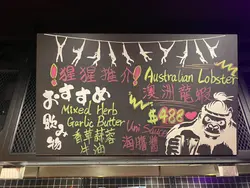 猩猩推介!
Australian Lobster
澳洲龍蝦
$488
おすすめ
飲み物
Mixed Herb
Garlic Butter
香草蒜蓉
牛油
Uni Sauce
海膽醬